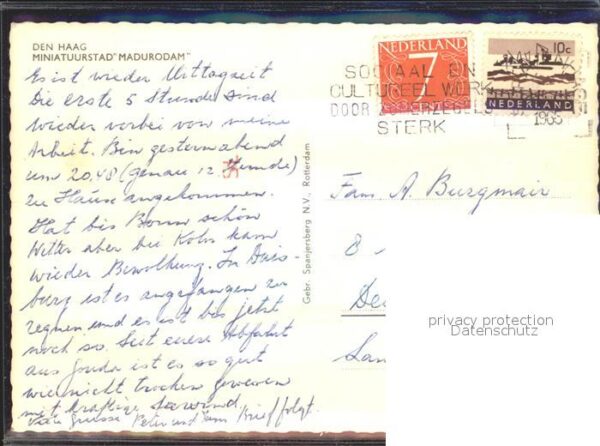 DEN HAAG
MINIATUURSTAD "MADURODAM"
Es ist wieder Mittagzeit
Die erste 5 Stunde sind
wieder vorbei von meine
Arbeit. Bin gesternabend
um 20.48 (genau 12 Stunde)
zu Hause angekommen.
Hat bis Bonn schön
Wetter aber bei Köln kam
wieder Bewolkung. In Duis-
burg ist es angefangen zu
regnen und es ist bis jetzt
noch so. Seit eurer Abfahrt
aus Gouda ist es so gut
wie nicht trocken gewesen
mit kräftige Seewind.
Viele Grüsse Peter und Fam Brief folgt.
Gebr. Spanjersberg N.V., Rotterdam
NEDERLAND
7
10c
NEDERLAND
SOCIAAL EN
CULTUREEL WERK
DOOR ZOMERZEGELS
STERK
Fam. A. Burgmair
8 -
privacy protection
Datenschutz